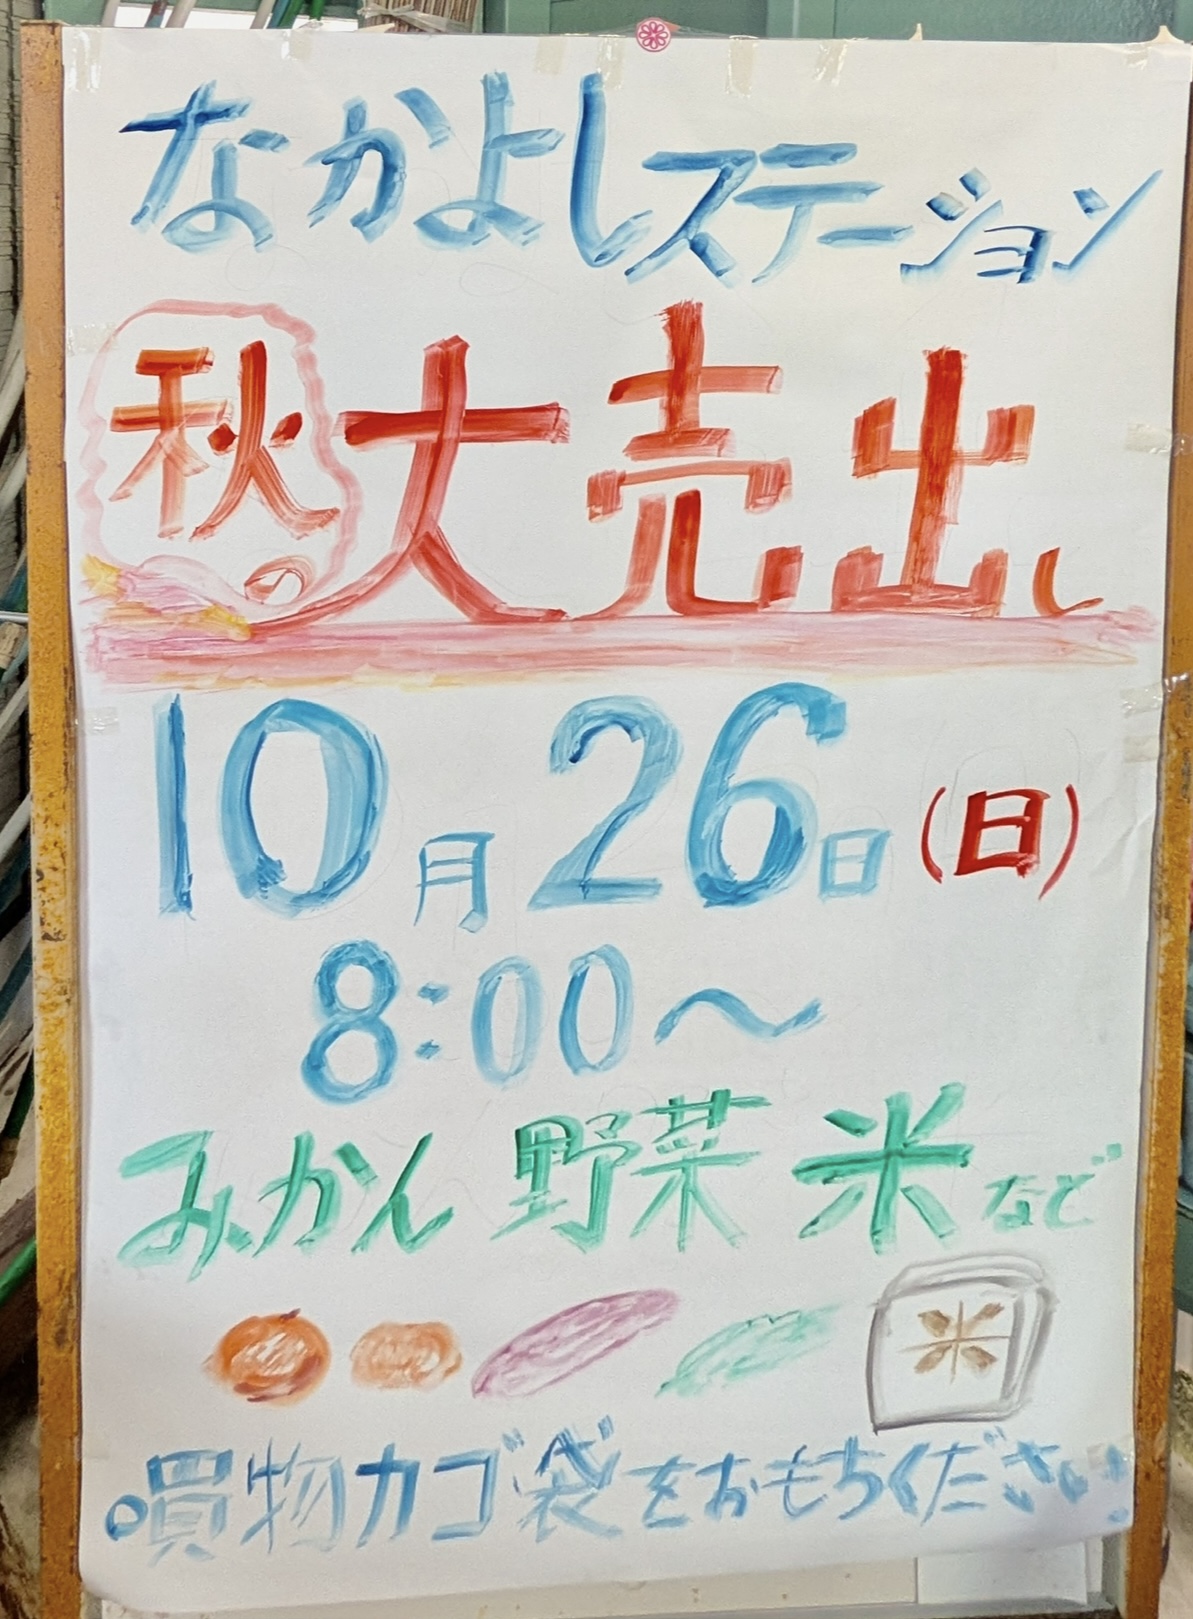 なかよしステーション
秋の大売出し
10月26日(日)
8:00～
みかん 野菜 米など
米
。買物カゴ袋をおもちください!